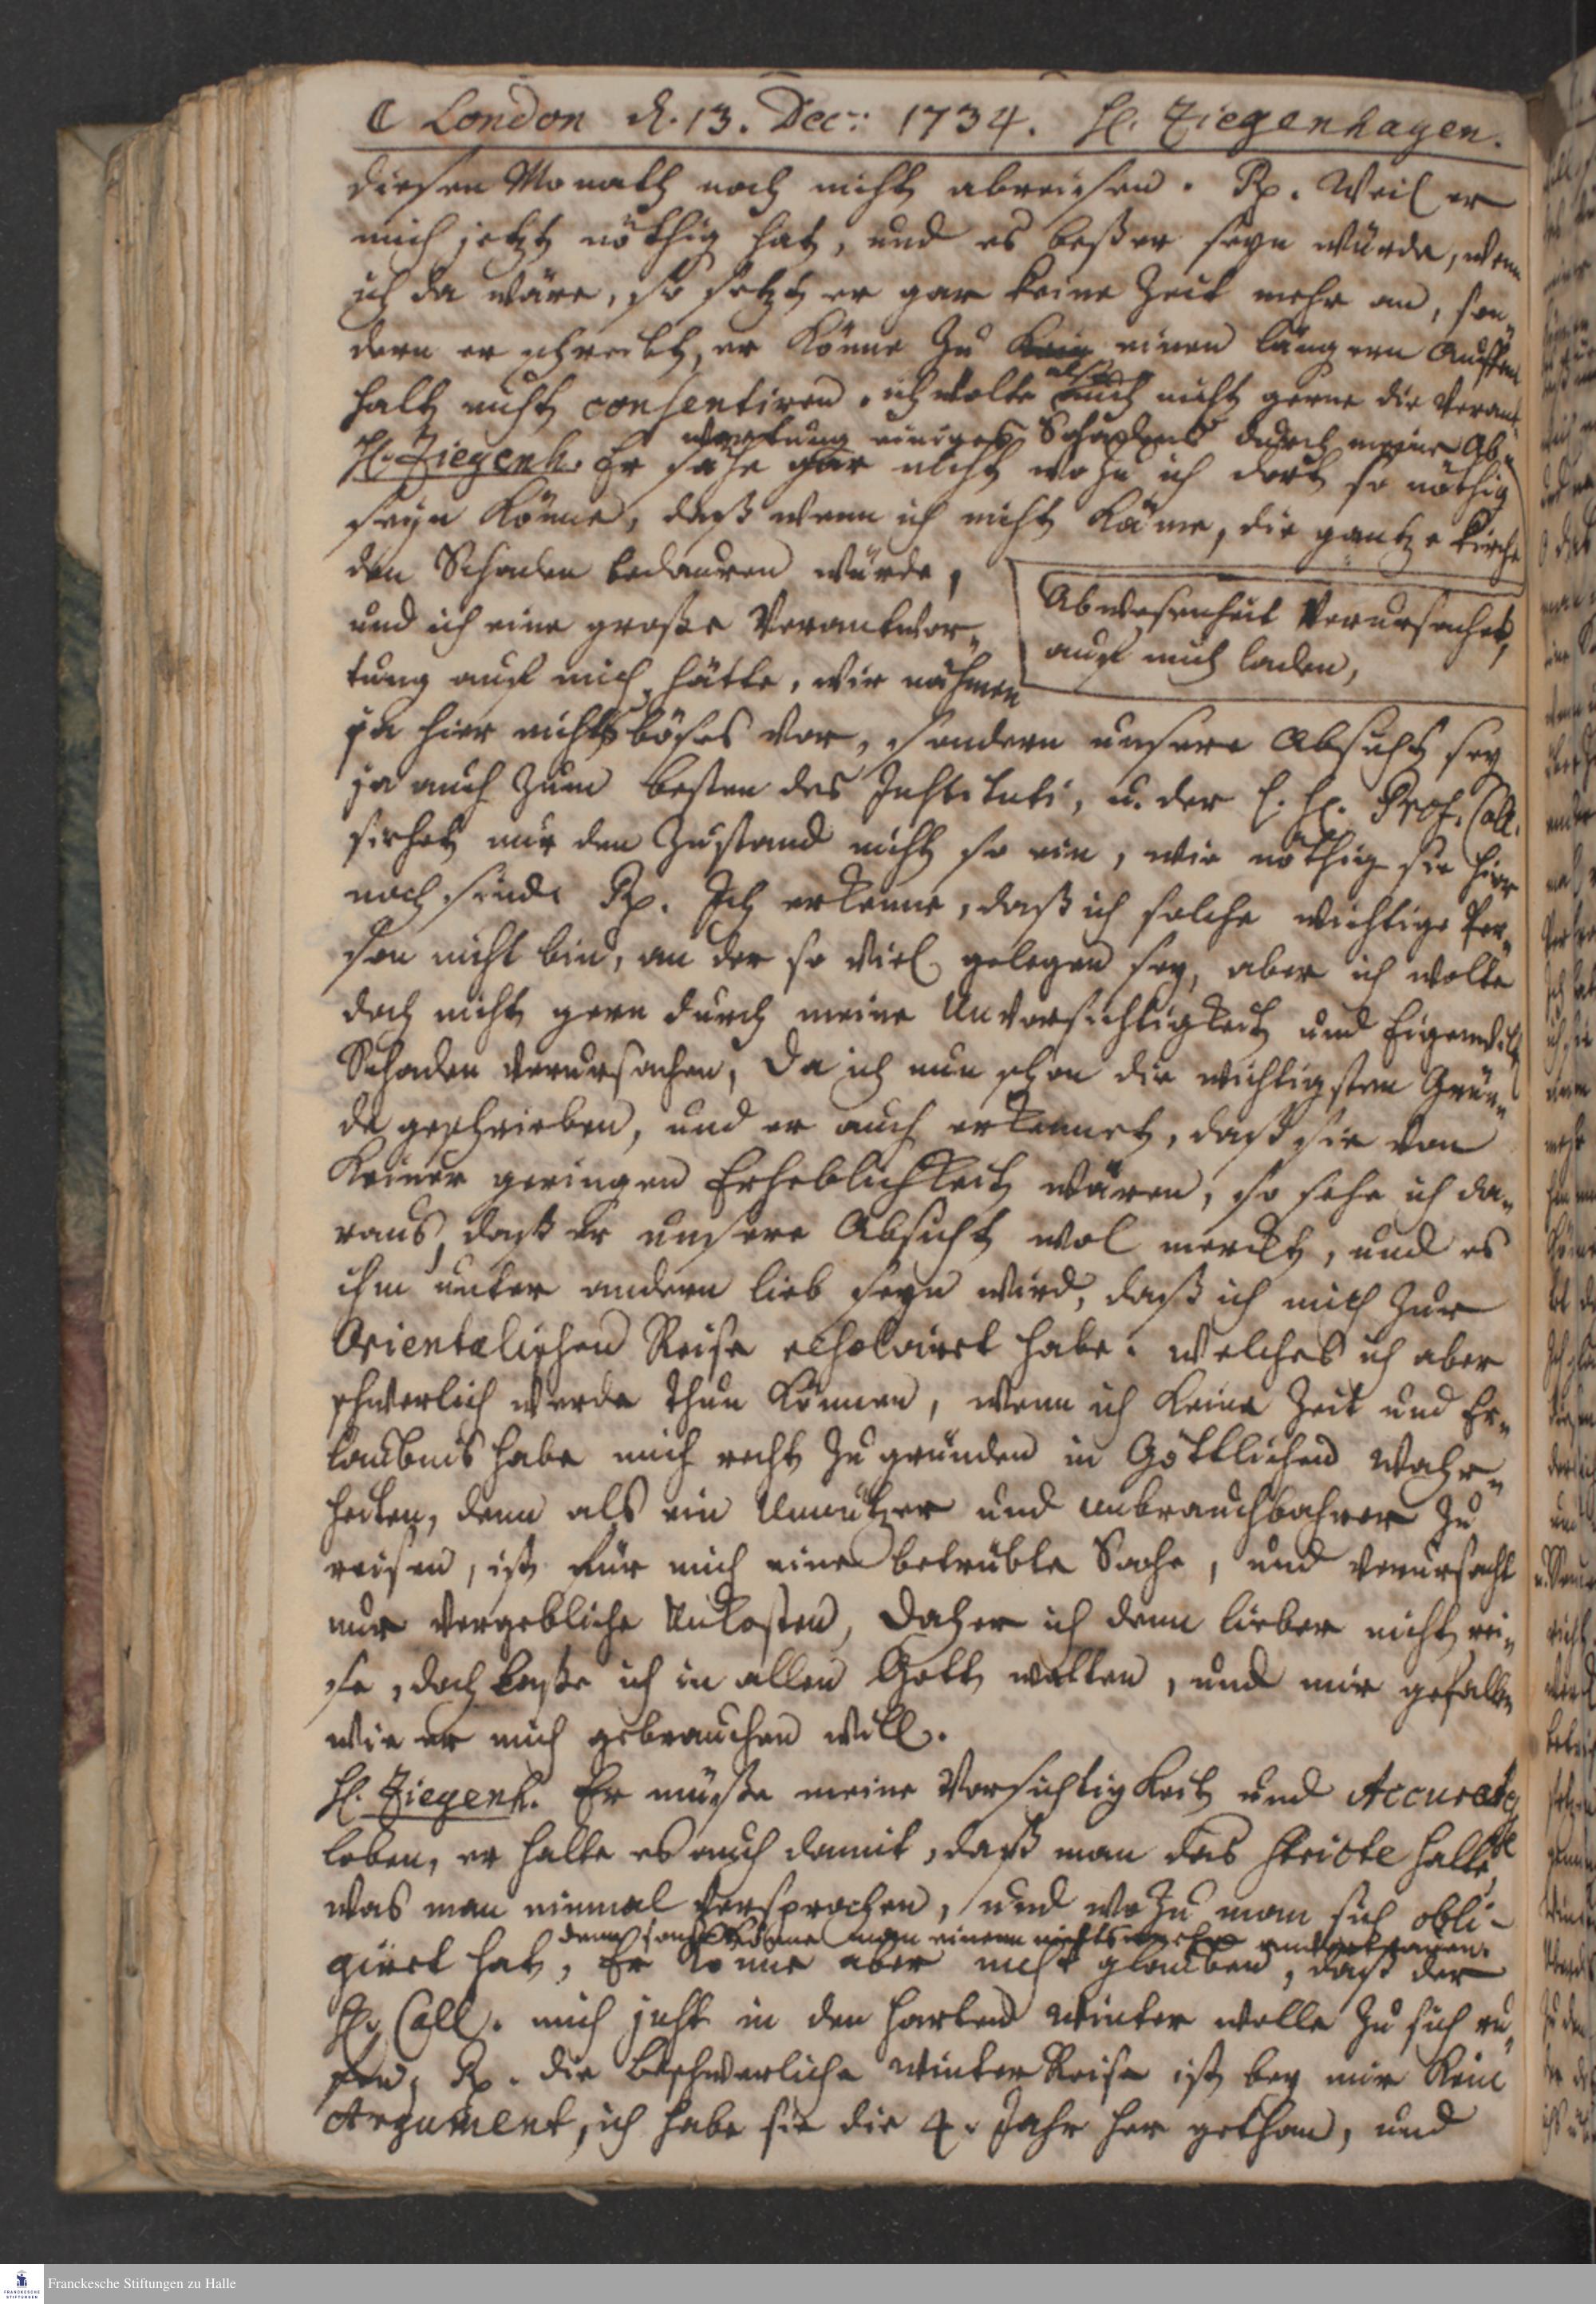 ☾ London d. 13. Dec: 1734. H. Ziegenhagen.
diesen Monath noch nicht abreisen. Rp. Weil er
mich jetzt nöthig hat, und es beßer seyn würde, wenn
ich da wäre, so setzt er gar keine Zeit mehr an, son„
dern er schreibt, er könne zu einen längern Auffent
halt nicht consentiren. ich wolte also auch nicht gerne die Verant„
wortung einiges Schadens durch meine Ab„
H. Ziegenh. Er sähe gar nicht wozu ich dort so nöthig
seyn könne, daß wenn ich nicht käme, die gantze Kirche
den Schaden bedauren würde,
Abwesenheit verursachet,
und ich eine große Verantwor„
auf mich laden,
tung auf mich hätte, wir nähmen
ja hier nichts böses vor, sondern unsere Absicht sey
ja auch zum besten des Instituti, u. der H. Prof. Call.
siehet nur den Zustand nicht so ein, wie nöthig sie hier
noch sind. Rp. Ich erkenne, daß ich solche wichtige Per„
son nicht bin, an der so viel gelegen sey, aber ich wolte
doch nicht gern durch meine Unvorsichtigkeit und Eigenwill
Schaden verursachen, Da ich nun schon die wichtigsten Grün„
de geschrieben, und er auch erkennet, daß sie von
keiner geringen Erheblichkeit wären, so sehe ich da„
raus, daß er unsere Absicht wol merckt, und es
ihm unter andern lieb seyn wird, daß ich mich zur
Orientalischen Reise resolvirt habe. welches ich aber
schwerlich werde thun können, wenn ich keine Zeit und Er„
laubnis habe mich recht zu gründen in Göttlichen Wahr„
heiten, denn als ein Unnützer und unbrauchbahrer zu
reisen, ist für mich eine betrübte Sache, und verursacht
nur vergebliche Unkosten, Daher ich denn lieber nicht rei„
se, doch laße ich in allen Gott walten, und mir gefallen
wie er mich gebrauchen will.
H. Ziegenh. Er müße meine Vorsichtigkeit und Accurate
loben, er halte es auch damit, daß man das stricte halte
was man einmal versprochen, und wozu man sich obli-
denn sonst könne man einem nichts mehr anvertrauen.
girt hat, Er könne aber nicht glauben, daß der
H. Call. mich jetzt in den harten Winter wolle zu sich ru„
fen, Rp. die beschwerliche Winter Reise ist bey mir kein
Argument, ich habe sie die 4. Jahr her gethan, und
Franckesche Stiftungen zu Halle